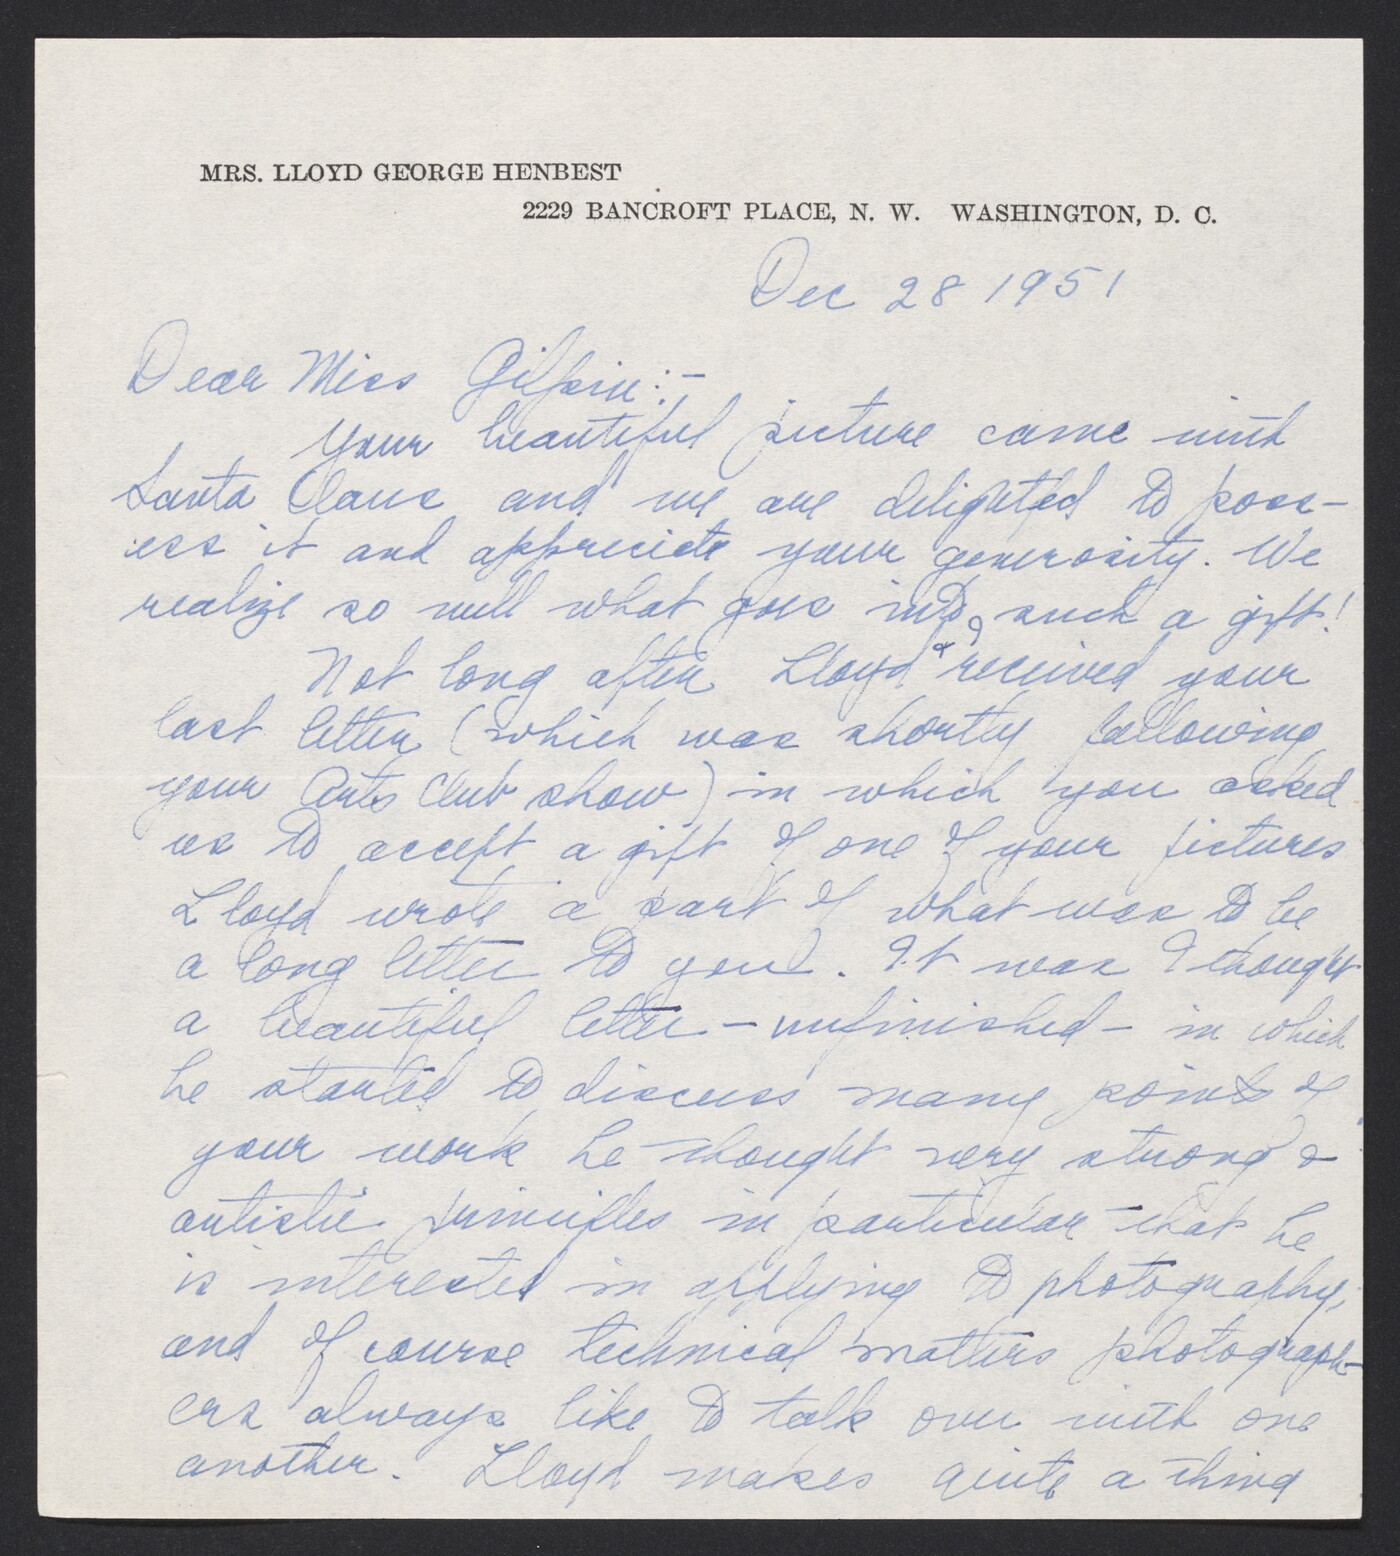 MRS. LLOYD GEORGE HENBEST
2229 BANCROFT PLACE, N. W. WASHINGTON, D. C.
Dec 28 1951
Dear Miss Gilpin:-
Your beautiful picture came with
Santa Claus and we are delighted to poss-
ess it and appreciate your generosity. We
realize so well what goes into such a gift!
Not long after Lloyd & I received your
last letter (which was shortly following
your Arts Club show) in which you asked
us to accept a gift of one of your pictures
Lloyd wrote a part of what was to be
a long letter to you. It was I thought
a beautiful letter - unfinished - in which
he started to discuss many points of
your work he thought very strong &
artistic principles in particular that he
is interested in applying to photography,
and of course technical matters photograph-
ers always like to talk over with one
another. Lloyd makes quite a thing